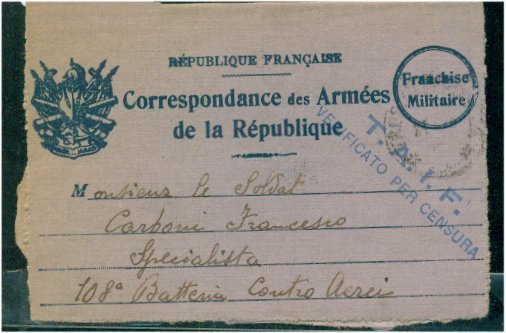 RÉPUBLIQUE FRANÇAISE
Correspondance des Armées
de la République
Franchise
Militaire
T. A. I. F.
VERIFICATO PER CENSURA
Monsieur le Soldat
Carboni Francesco
Specialista
108ª Batteria Contro Aerei